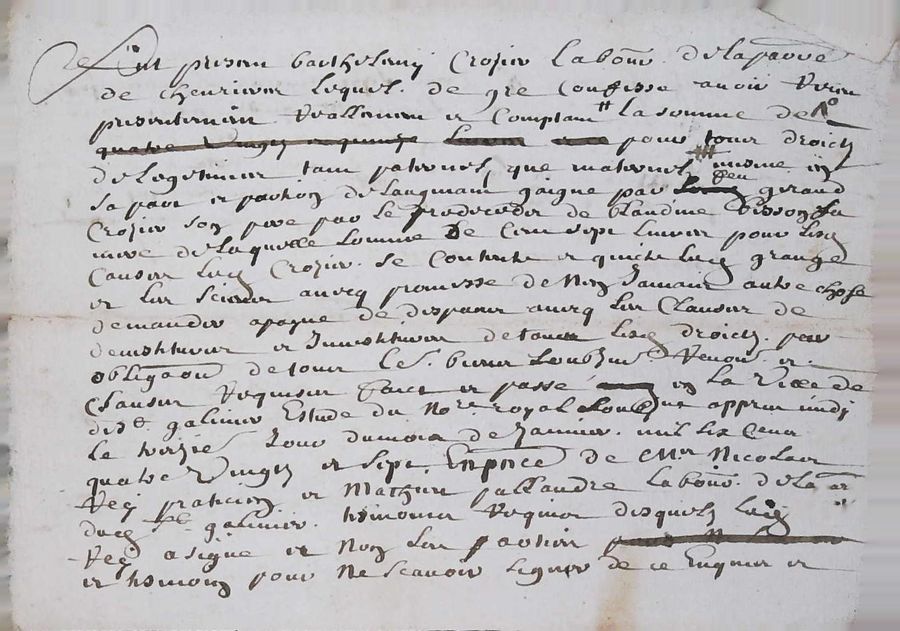 fut presen barthelemy Crosier labour. de la parroe
de cheurieres lequel. de gre Confesse auoir Receu
presentemen Reallemen et Comptant la somme de
quatre vingtz et quinze pour tour droictz
de legitime tant paternel, que maternel mesme
sa part et portion de laugman gaigne par feu giraud
Crosier son pere par le predeceder de blandine bisson sa
mere de laquelle somme de Cens sept liures pour lesq
Causes led Crosier. se Contente et quicte led grange
et les sciens aueq promesse de non jamais autre chose
demander apayne de despans aueq les Clauses de
demishture et Inuestiture de tour lesd droictz. par
obligaon de tour ses. biens Renon et.
Clauses Requises faict et passé en la Ville de
dict galmier Estude du nore royal apprez midj
le treize Jour du mois de Janvier. mil six Cens
quatre vingtz et sept, En pnce de Me Nicolas
Rey praticien et Mathieu pallandre labour. de la
dud St galmier. tesmoins Requis desquelz led
Rey a signe et non les parties
et tesmoins pour ne scauoir signer de ce Enquis et